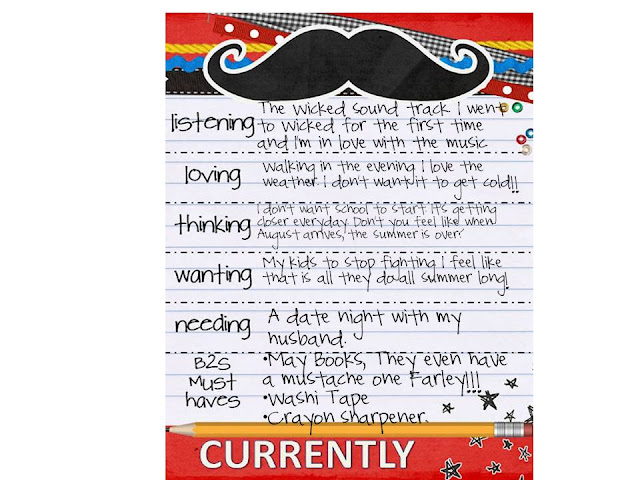 listening
The Wicked sound track I went
to Wicked for the first time
and I'm in love with the music
loving
Walking in the evening I love the
weather I don't want it to get cold!!
thinking
I don't want school to start it's getting
closer everyday. Don't you feel like when
August arrives, the summer is over?
wanting
My kids to stop fighting I feel like
that is all they do all summer long!
needing
A date night with my
husband.
B2S
Must
haves
•May Books, They even have
a mustache one Farley!!!
•Washi Tape
•Crayon sharpener.
CURRENTLY